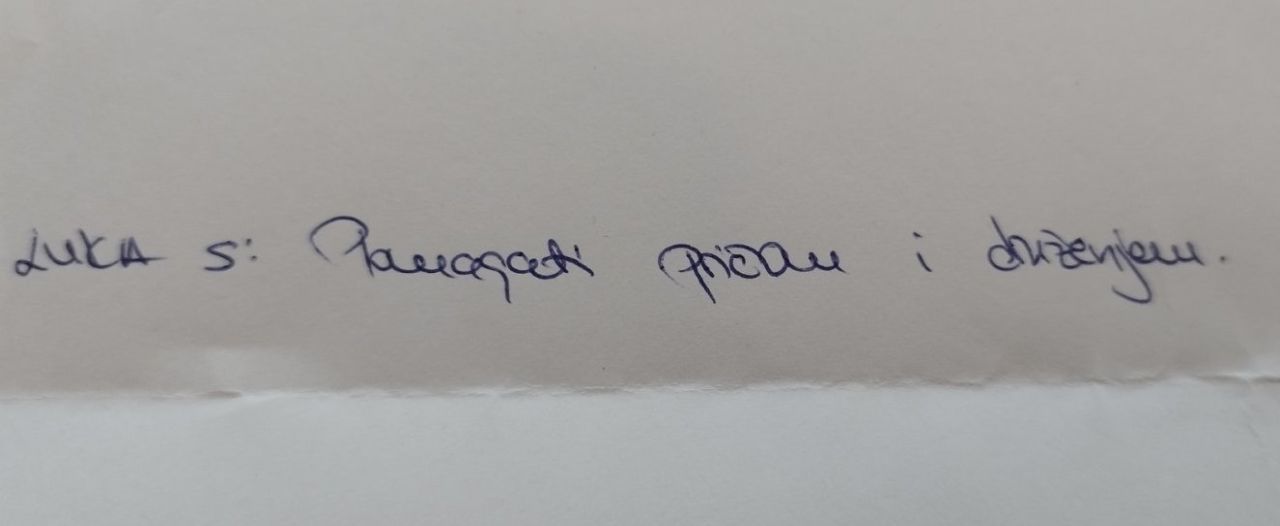 LUKA S: Pomagati pričom i druženjem.